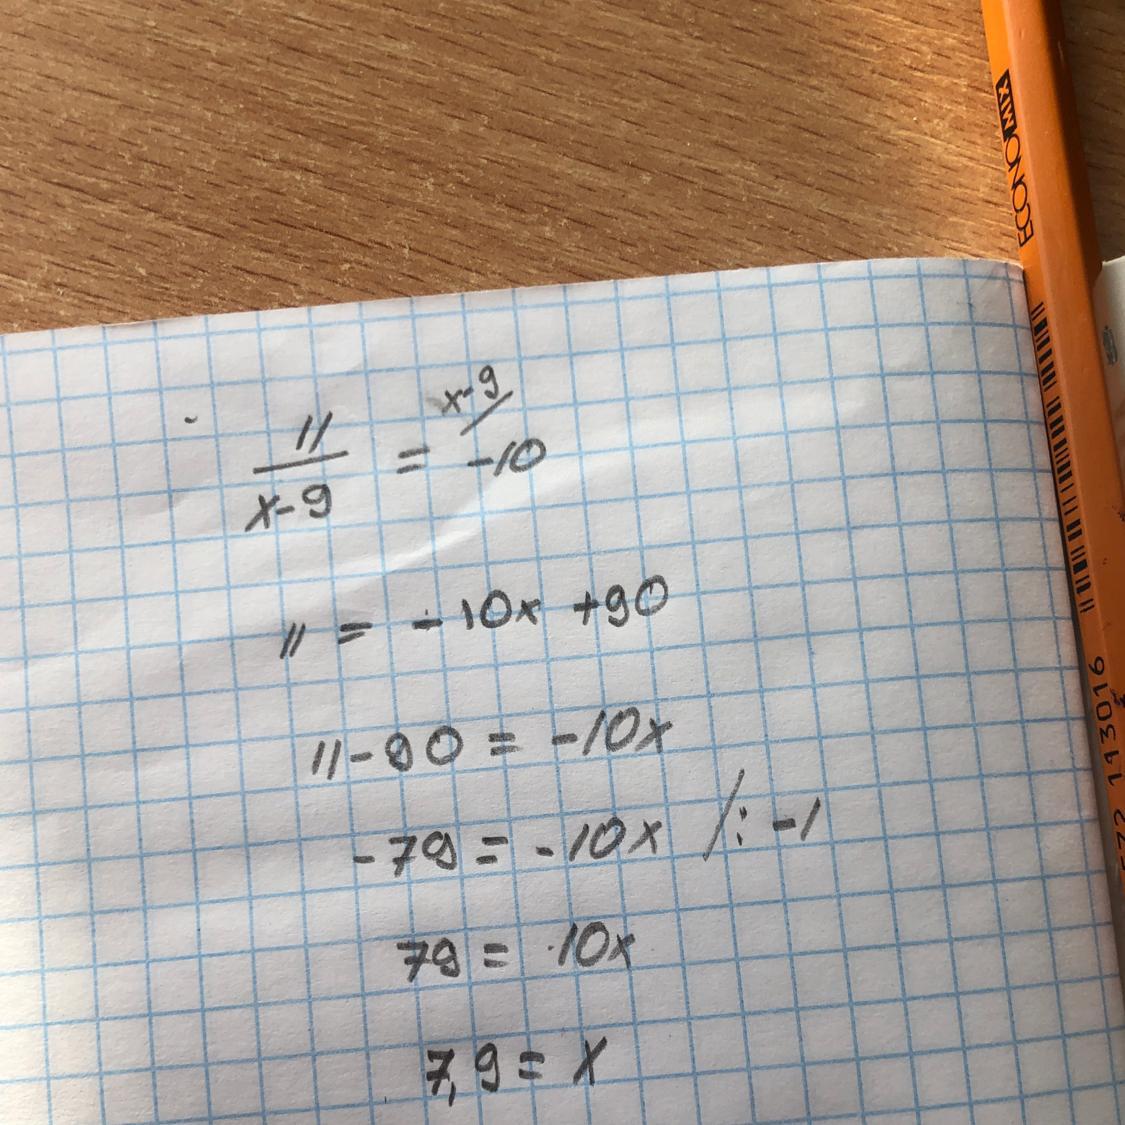 x-9/
11/(x-9) = -10
11 = -10x +90
11-90 = -10x
-79 = -10x /: -1
79 = 10x
7,9 = x
ECONOMIX
113016